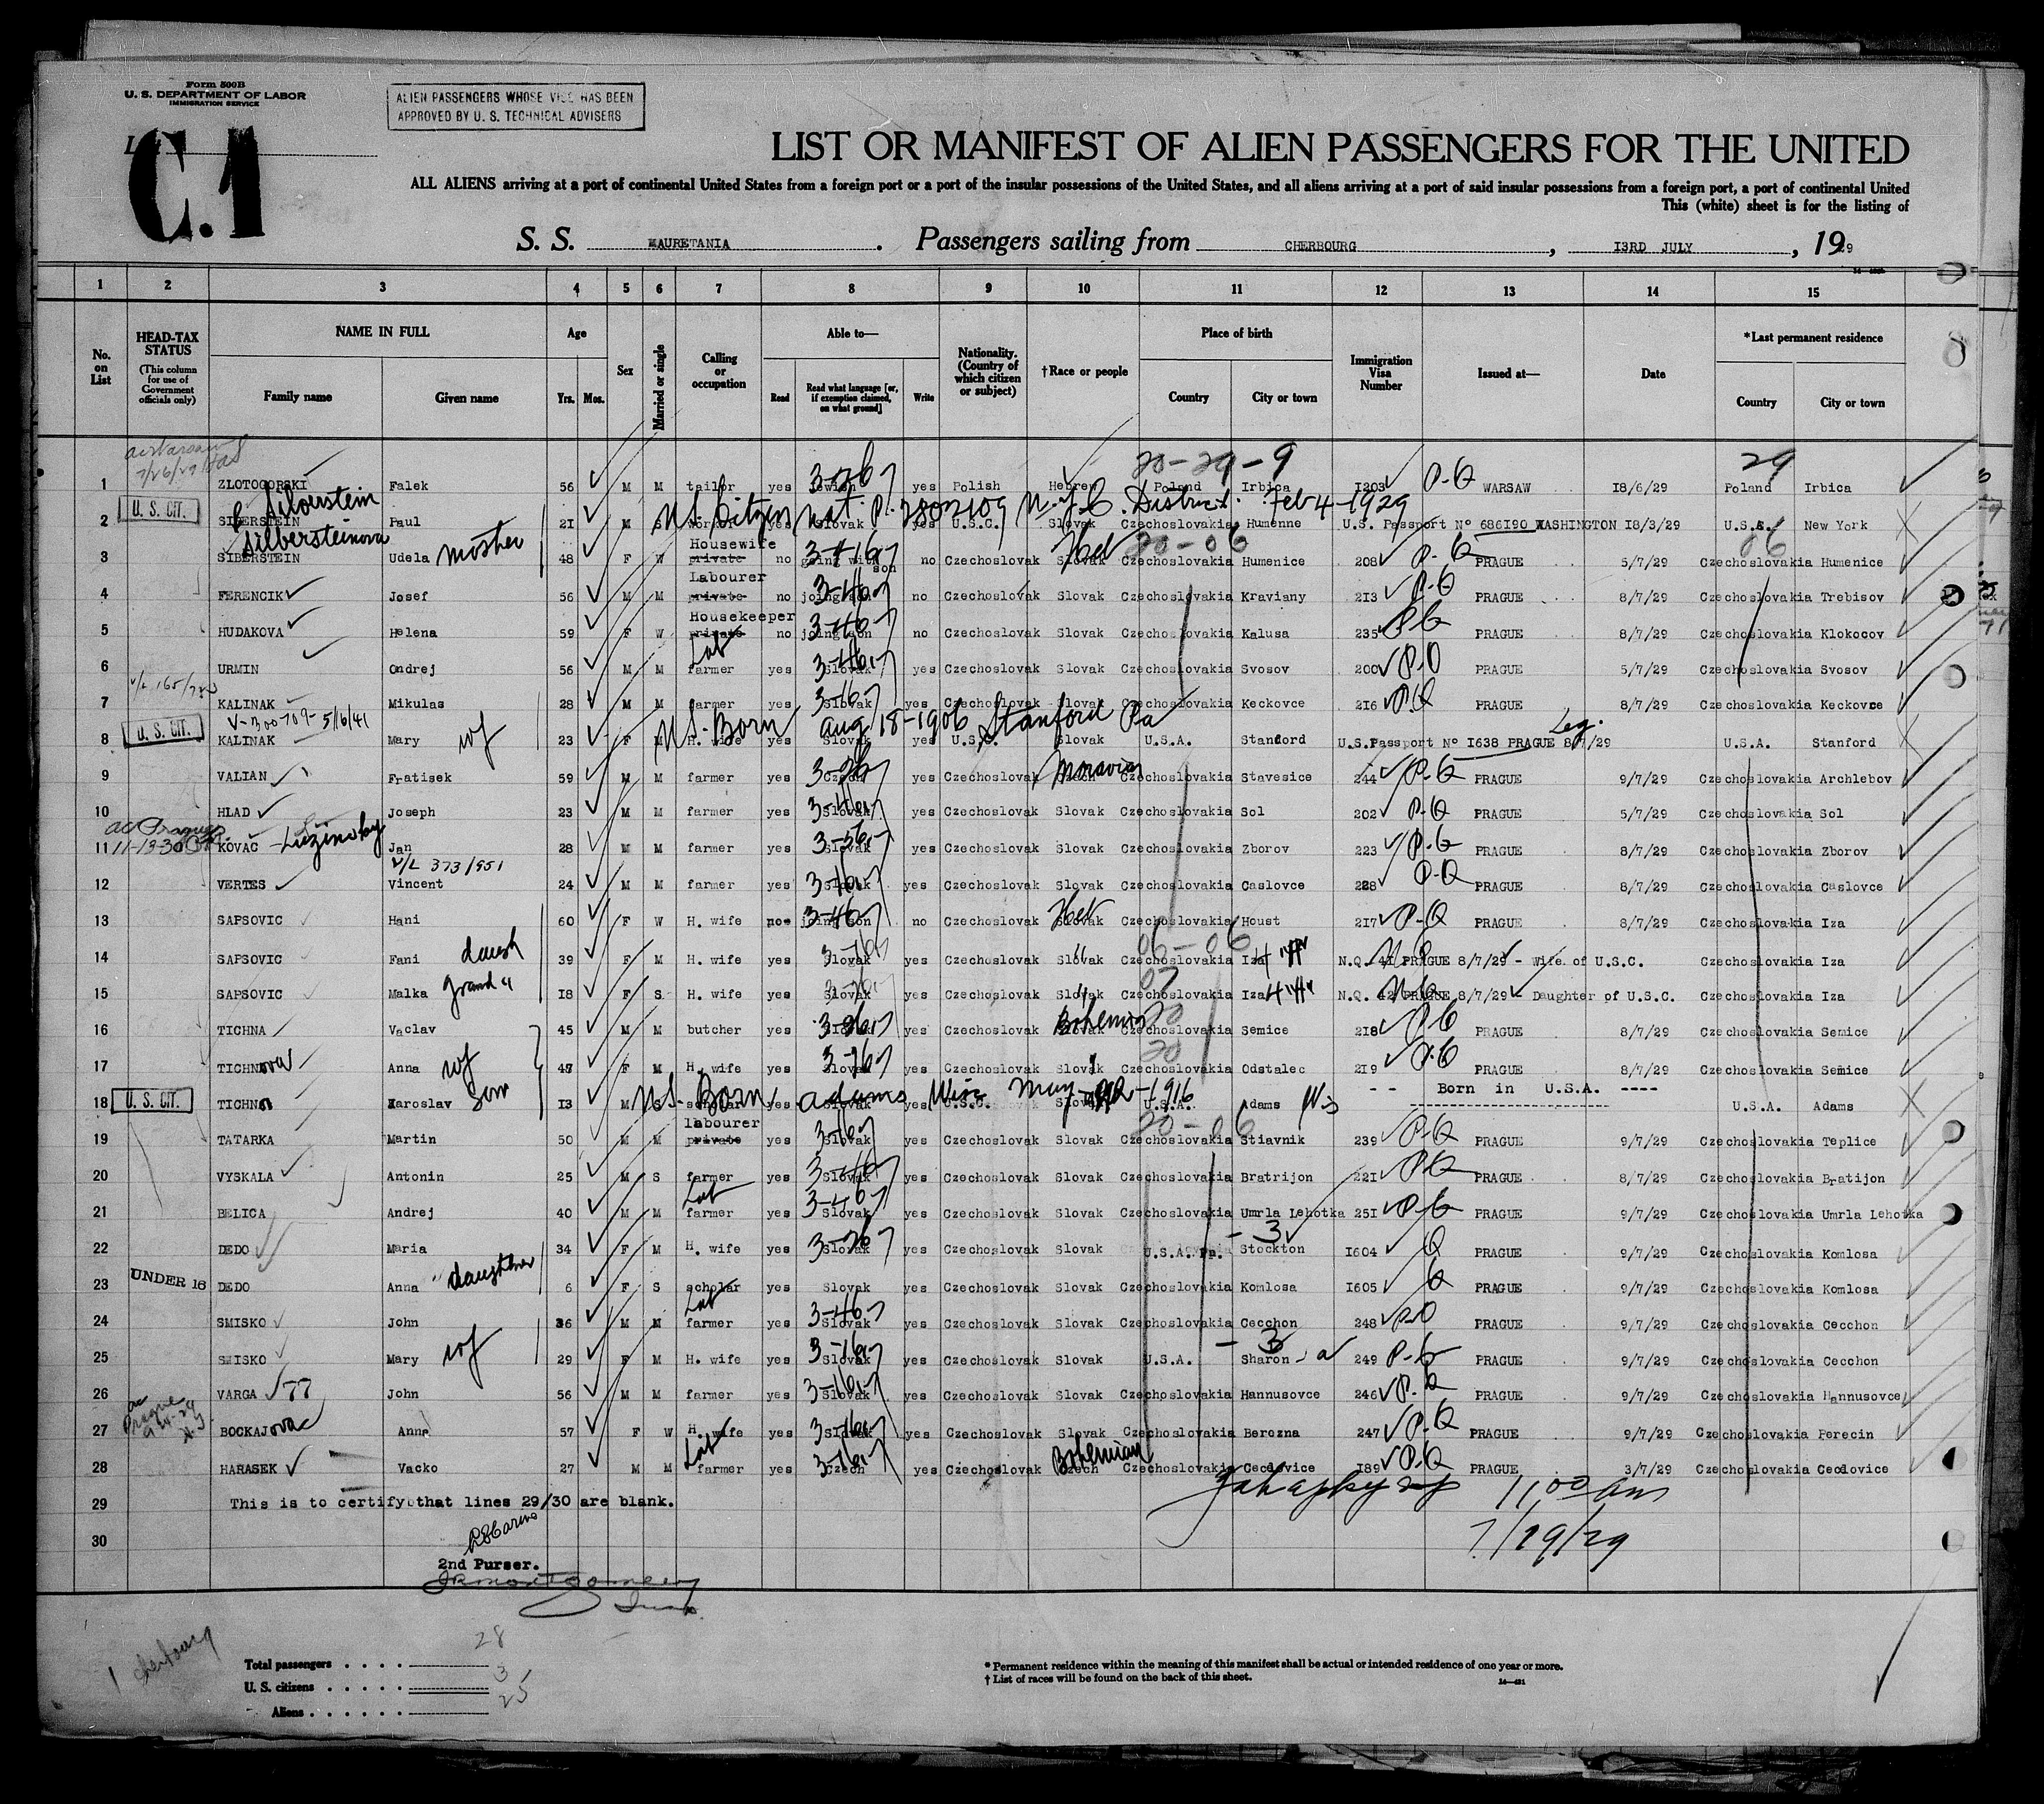 Form 500B
U. S. DEPARTMENT OF LABOR
IMMIGRATION SERVICE
ALIEN PASSENGERS WHOSE VISE HAS BEEN
APPROVED BY U. S. TECHNICAL ADVISERS
C.1
LIST OR MANIFEST OF ALIEN PASSENGERS FOR THE UNITED
ALL ALIENS arriving at a port of continental United States from a foreign port or a port of the insular possessions of the United States, and all aliens arriving at a port of said insular possessions from a foreign port, a port of continental United
This (white) sheet is for the listing of
S. S. MAURETANIA. Passengers sailing from CHERBOURG, I3RD JULY, 1929
1 2 3 4 5 6 7 8 9 10 11 12 13 14 15
No. on List
HEAD-TAX STATUS (This column for use of Government officials only)
NAME IN FULL Family name Given name
Age Yrs. Mos.
Sex
Married or single
Calling or occupation
Able to— Read Read what language [or, if exemption claimed, on what ground] Write
Nationality. (Country of which citizen or subject)
†Race or people
Place of birth Country City or town
Immigration Visa Number
Issued at—
Date
*Last permanent residence Country City or town
20-29-9 29
1 ZLOTOGORSKI Falek 56 M M tailor yes yes Polish Hebrew Poland Irbica I203 P-Q WARSAW I8/6/29 Poland Irbica
Silverstein
2 U. S. CIT. SIBERSTEIN Paul 2I M S yes Slovak yes U.S.C. Slovak Czechoslovakia Humenne U.S. Passport Nº 686I90 WASHINGTON I8/3/29 U.S.A. New York
US Citizen Nat. P. 2802109 N.Y.C. District. Feb 4-1929
Silbersteinova
3 SIBERSTEIN Udela mother 48 F W Housewife private no going with son no Czechoslovak Slovak Heb Czechoslovakia Humenice 208 P-Q PRAGUE 5/7/29 Czechoslovakia Humenice
4 FERENCIK Josef 56 M M Labourer private no no Czechoslovak Slovak Czechoslovakia Kraviany 2I3 P-Q PRAGUE 8/7/29 Czechoslovakia Trebisov
5 HUDAKOVA Helena 59 F W Housekeeper private no no Czechoslovak Slovak Czechoslovakia Kalusa 235 PQ PRAGUE 8/7/29 Czechoslovakia Klokocov
6 URMIN Ondrej 56 M M Lab farmer yes Slovak yes Czechoslovak Slovak Czechoslovakia Svosov 200 P-Q PRAGUE 5/7/29 Czechoslovakia Svosov
7 KALINAK Mikulas 28 M M farmer yes Slovak yes Czechoslovak Slovak Czechoslovakia Keckovce 2I6 P.Q PRAGUE 8/7/29 Czechoslovakia Keckovce
V-300709-5/16/41
8 U. S. CIT. KALINAK Mary wf 23 F M H. wife yes Slovak yes U.S.C. Slovak U.S.A. Stanford U.S.Passport Nº I638 PRAGUE 8/7/29 U.S.A. Stanford
U.S. Born Aug 18-1906 Stanford Pa
9 VALIAN Fratisek 59 M M farmer yes yes Czechoslovak Moravian Czechoslovakia Stavesice 244 P-Q PRAGUE 9/7/29 Czechoslovakia Archlebov
10 HLAD Joseph 23 M M farmer yes Slovak yes Czechoslovak Slovak Czechoslovakia Sol 202 P-Q PRAGUE 5/7/29 Czechoslovakia Sol
11 KOVAC Jan 28 M M farmer yes Slovak yes Czechoslovak Slovak Czechoslovakia Zborov 223 P-Q PRAGUE 8/7/29 Czechoslovakia Zborov
V/L 373/951
12 VERTES Vincent 24 M M farmer yes yes Czechoslovak Slovak Czechoslovakia Caslovce 228 P-Q PRAGUE 8/7/29 Czechoslovakia Caslovce
13 SAPSOVIC Hani 60 F W H. wife no no Czechoslovak Slovak Heb Czechoslovakia Houst 2I7 P-Q PRAGUE 8/7/29 Czechoslovakia Iza
14 SAPSOVIC Fani daugh 39 F M H. wife yes Slovak yes Czechoslovak Slovak Czechoslovakia Iza N.Q. 4I PRAGUE 8/7/29 - Wife of U.S.C. Czechoslovakia Iza
15 SAPSOVIC Malka grand " I8 F S H. wife yes Slovak yes Czechoslovak Slovak Czechoslovakia Iza N.Q. 42 PRAGUE 8/7/29 - Daughter of U.S.C. Czechoslovakia Iza
16 TICHNA Vaclav 45 M M butcher yes yes Czechoslovak Bohemian Czechoslovakia Semice 2I8 P-Q PRAGUE 8/7/29 Czechoslovakia Semice
17 TICHNova Anna wf 47 F M H. wife yes Slovak yes Czechoslovak Slovak Czechoslovakia Odstalec 2I9 P-Q PRAGUE 8/7/29 Czechoslovakia Semice
18 U. S. CIT. TICHNA Jaroslav Son I3 M S scholar yes Slovak yes U.S.C. Slovak U.S.A. Adams Wis -- Born in U.S.A. ---- U.S.A. Adams
U.S. Born Adams Wis
19 TATARKA Martin 50 M M labourer private yes Slovak yes Czechoslovak Slovak Czechoslovakia Stiavnik 239 P-Q PRAGUE 9/7/29 Czechoslovakia Teplice
20 VYSKALA Antonin 25 M S farmer yes Slovak yes Czechoslovak Slovak Czechoslovakia Bratrijon 22I PQ PRAGUE 8/7/29 Czechoslovakia Bratijon
21 BELICA Andrej 40 M M Lab farmer yes Slovak yes Czechoslovak Slovak Czechoslovakia Umrla Lehotka 25I P-Q PRAGUE 9/7/29 Czechoslovakia Umrla Lehotka
22 DEDO Maria 34 F M H. wife yes Slovak yes Czechoslovak Slovak U.S.A. Pa. Stockton I604 Q PRAGUE 9/7/29 Czechoslovakia Komlosa
23 UNDER 16 DEDO Anna daughter 6 F S scholar yes Slovak yes Czechoslovak Slovak Czechoslovakia Komlosa I605 Q PRAGUE 9/7/29 Czechoslovakia Komlosa
24 SMISKO John 36 M M Lab farmer yes Slovak yes Czechoslovak Slovak Czechoslovakia Cecchon 248 PQ PRAGUE 9/7/29 Czechoslovakia Cecchon
25 SMISKO Mary wf 29 F M H. wife yes Slovak yes Czechoslovak Slovak U.S.A. Sharon 249 P-Q PRAGUE 9/7/29 Czechoslovakia Cecchon
26 VARGA John 56 M M farmer yes Slovak yes Czechoslovak Slovak Czechoslovakia Hannusovce 246 P.Q PRAGUE 9/7/29 Czechoslovakia Hannusovce
27 BOCKAJova Anna 57 F W H. wife yes Slovak yes Czechoslovak Slovak Czechoslovakia Berezna 247 P-Q PRAGUE 9/7/29 Czechoslovakia Perecin
28 HARASEK Vacko 27 M M Lab farmer yes Czech yes Czechoslovak Czech Bohemian Czechoslovakia Ceodovice I89 P-Q PRAGUE 3/7/29 Czechoslovakia Ceodovice
29 This is to certify that lines 29/30 are blank. 11,00 am
30 7/19/29
2nd Purser.
28
Total passengers . . . .
3
U. S. citizens . . . . .
25
Aliens . . . . . .
1 Cherbourg
* Permanent residence within the meaning of this manifest shall be actual or intended residence of one year or more.
† List of races will be found on the back of this sheet.